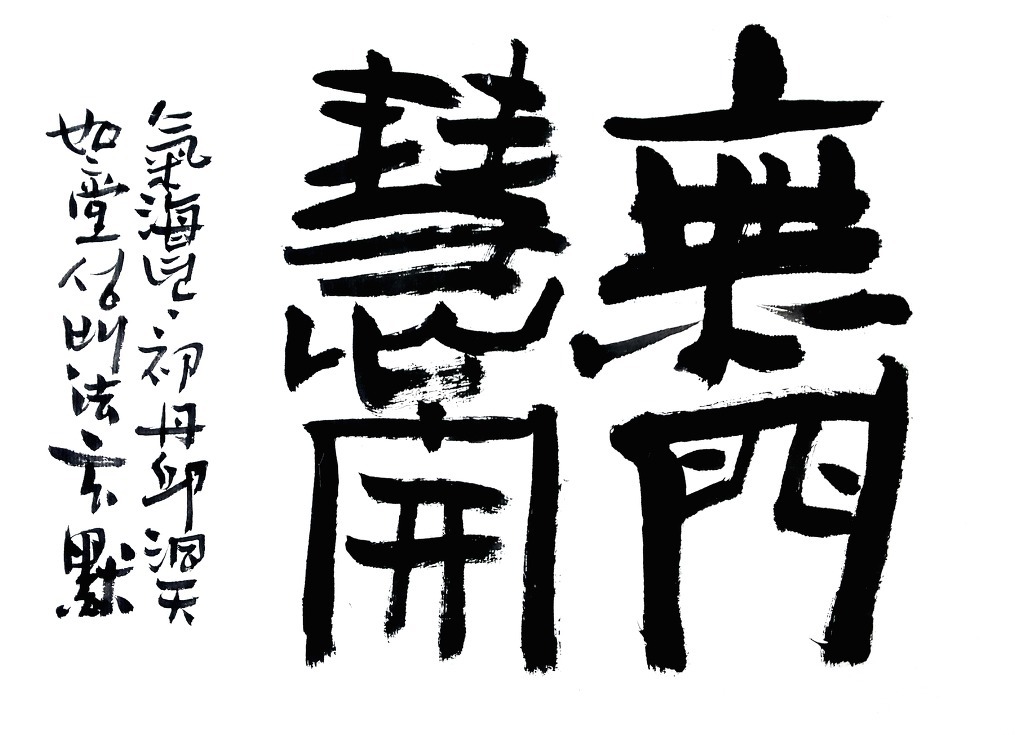 無門
慧開
氣海년初丹邱洞天
如堂성배法玄默